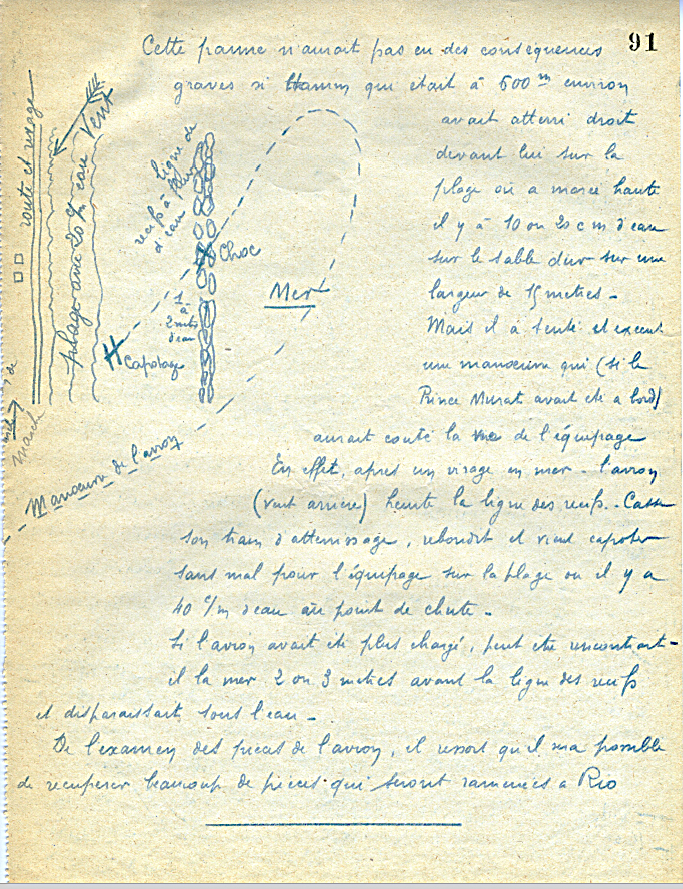 91
Cette panne n'aurait pas eu des conséquences
graves si Hamm qui était à 600m environ
avait atterri droit
devant lui sur la
plage où a marée haute
il y à 10 ou 20 cm d'eau
sur le sable dur sur une
largeur de 15 metres -
Mais il à tenté et execute
une manoeuvre qui (si le
Prince Murat avait été a bord)
aurait couté la vie de l'équipage
En effet, apres un virage en mer - l'avion
(vent arriere) heurte la ligne des recifs. - Casse
son train d'atterrissage, rebondit et vient capoter
sans mal pour l'équipage sur la plage ou il y a
40 c/m d'eau au point de chute -
Si l'avion avait été plus chargé, peut etre rencontrait-
il la mer 2 ou 3 metres avant la ligne des recifs
et disparaissait sous l'eau -
De l'examen des pieces de l'avion, il ressort qu'il sera possible
de recuperer beaucoup de pièces qui seront ramenées a Rio
route et virage
plage avec 20 c/m eau
Vent
ligne de
recifs à fleur
d'eau
Choc
Mer
1
à
2 mtrs
d'eau
Capotage
Manoeuvre de l'avion
marche